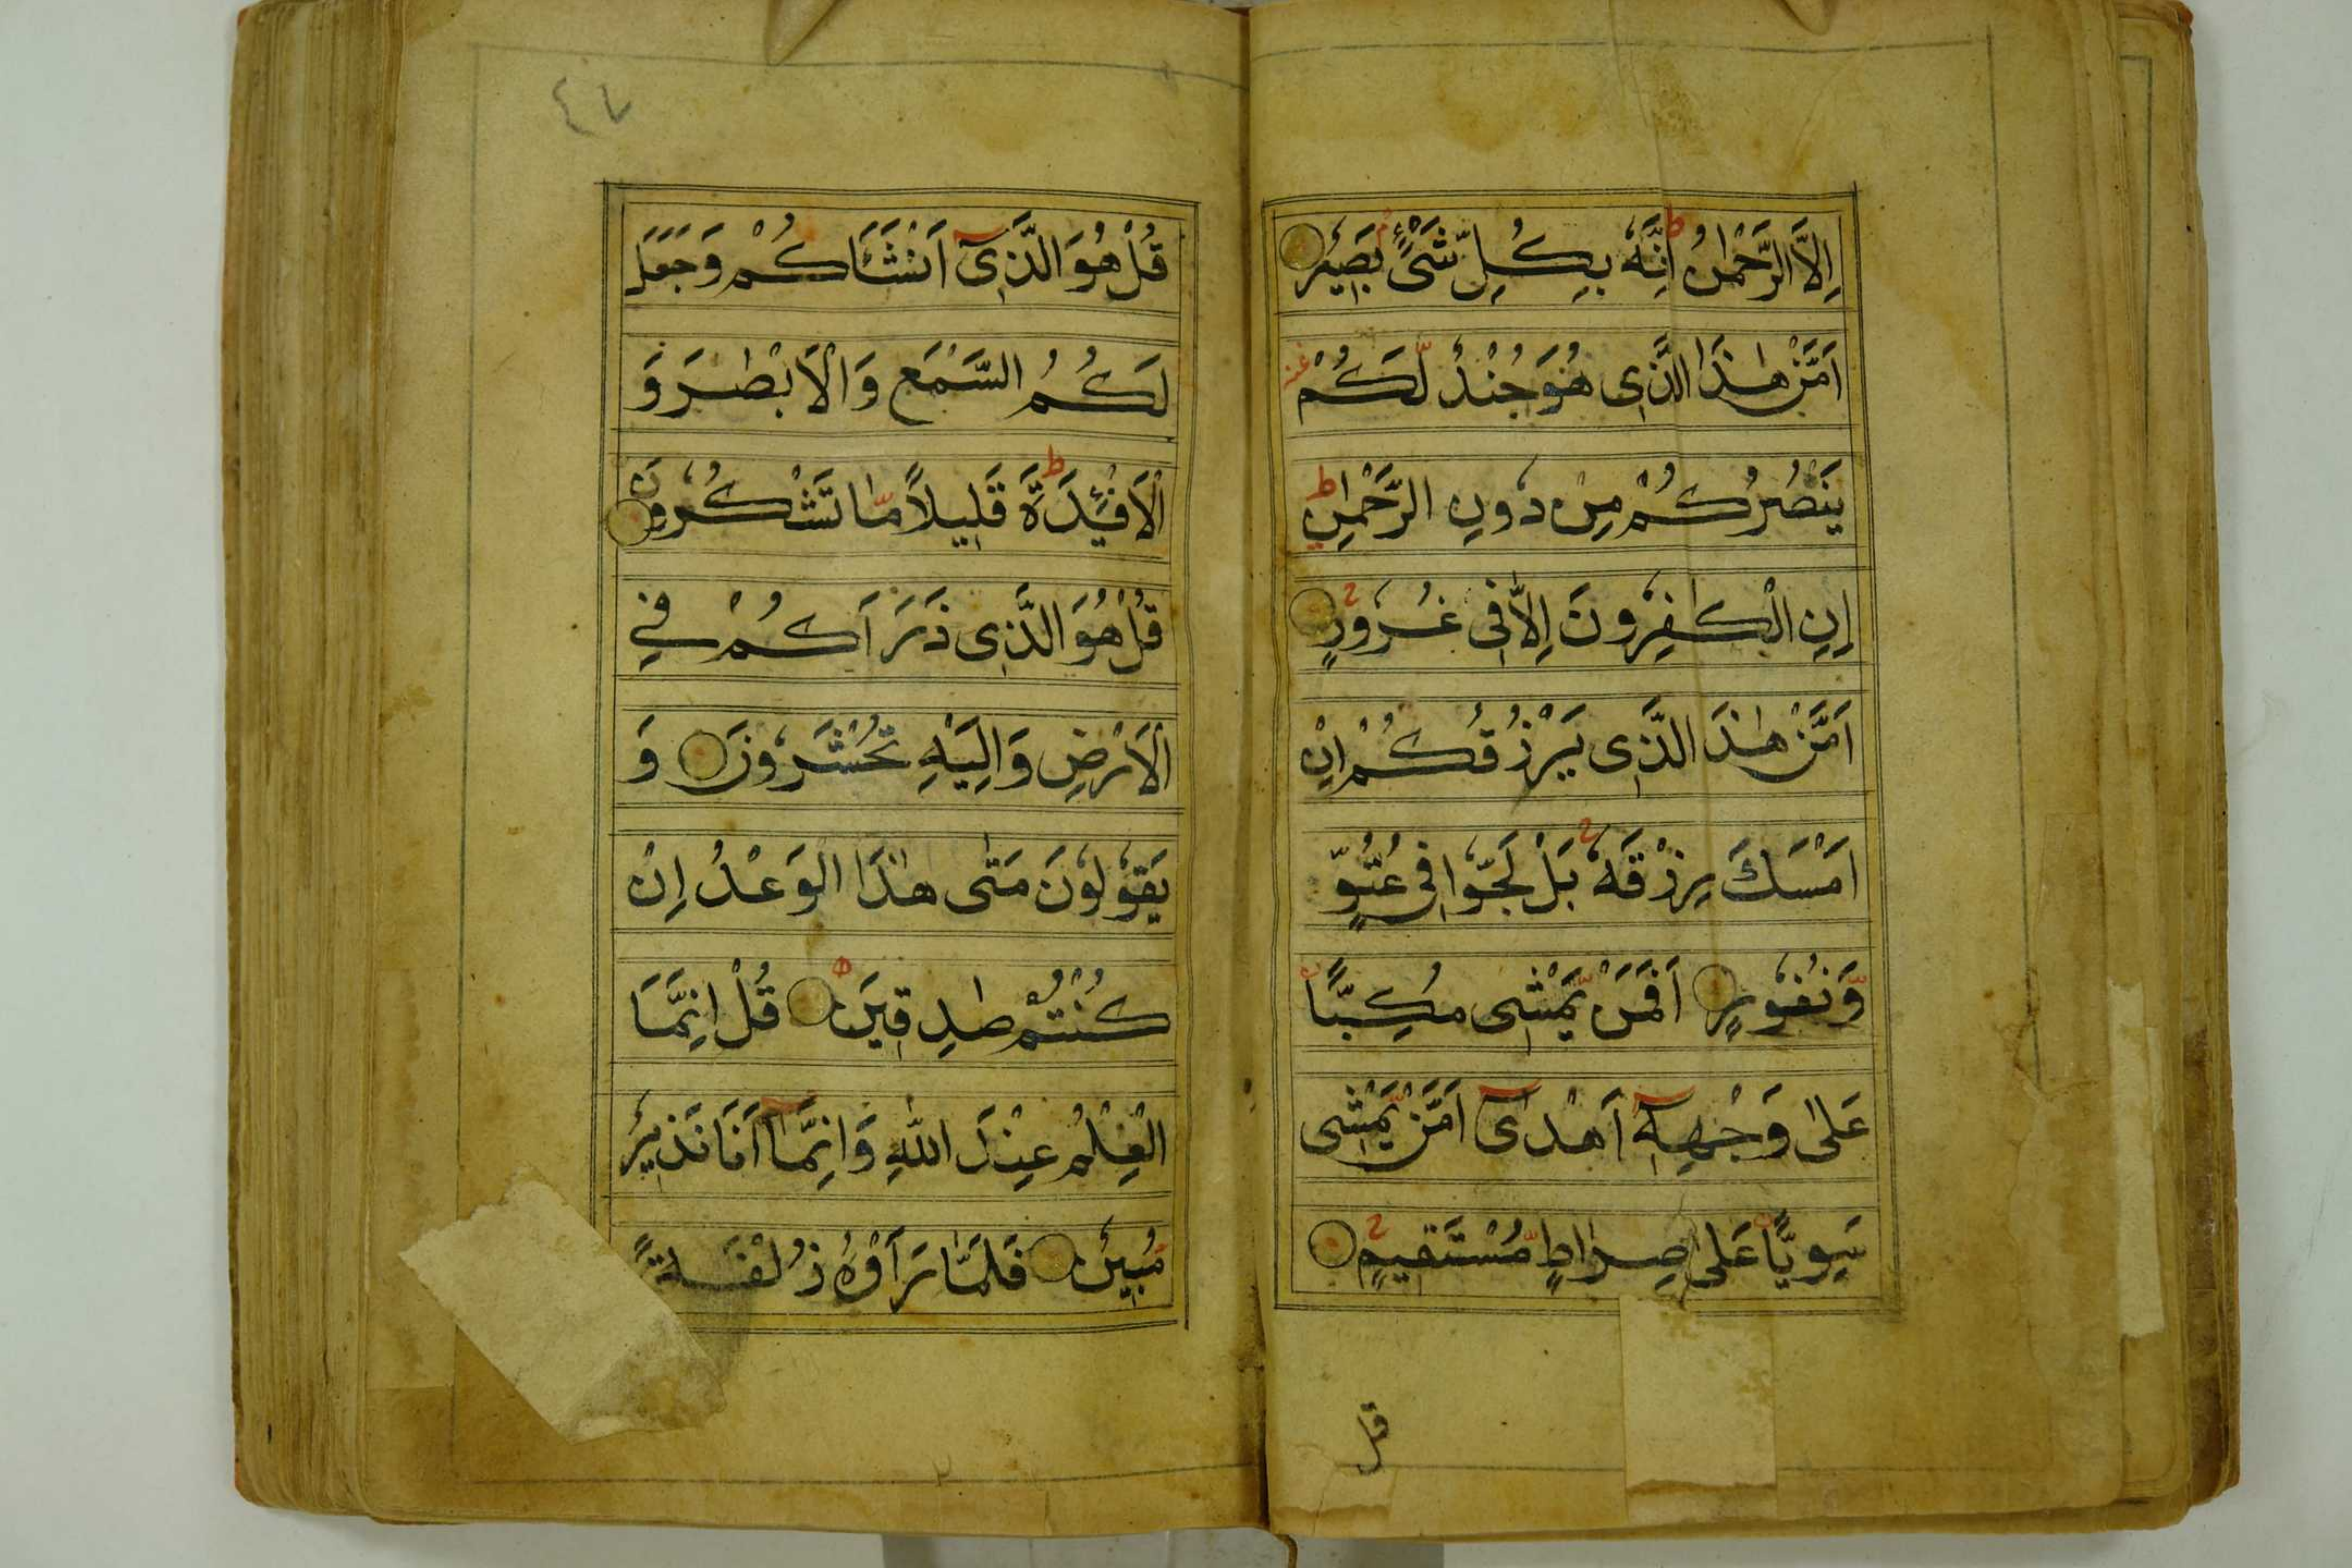 اِلَّا الرَّحْمٰنُ ط اِنَّهٗ بِكُلِّ شَىْءٍۢ بَصِيْرٌ
اَمَّنْ هٰذَا الَّذِى هُوَ جُنْدٌ لَّكُمْ
يَنْصُرُكُمْ مِنْ دُوْنِ الرَّحْمٰنِ ط
اِنِ الْكٰفِرُوْنَ اِلَّا فِى غُرُوْرٍ
اَمَّنْ هٰذَا الَّذِى يَرْزُقُكُمْ اِنْ
اَمْسَكَ رِزْقَهٗ بَلْ لَجُّوْا فِى عُتُوٍّ
وَّنُفُوْرٍ اَفَمَنْ يَّمْشِى مُكِبًّا
عَلٰى وَجْهِهٖٓ اَهْدٰىٓ اَمَّنْ يَّمْشِى
سَوِيًّا عَلٰى صِرَاطٍ مُّسْتَقِيْمٍ
قل
٤٧
قُلْ هُوَ الَّذِىٓ اَنْشَاَكُمْ وَجَعَلَ
لَكُمُ السَّمْعَ وَالْاَبْصٰرَ وَ
الْاَفْئِدَةَ ط قَلِيْلًا مَّا تَشْكُرُوْنَ
قُلْ هُوَ الَّذِى ذَرَاَكُمْ فِى
الْاَرْضِ وَاِلَيْهِ تُحْشَرُوْنَ وَ
يَقُوْلُوْنَ مَتٰى هٰذَا الْوَعْدُ اِنْ
كُنْتُمْ صٰدِقِيْنَ قُلْ اِنَّمَا
الْعِلْمُ عِنْدَ اللّٰهِ وَاِنَّمَآ اَنَا نَذِيْرٌ
مُّبِيْنٌ فَلَمَّا رَاَوْهُ زُلْفَةً